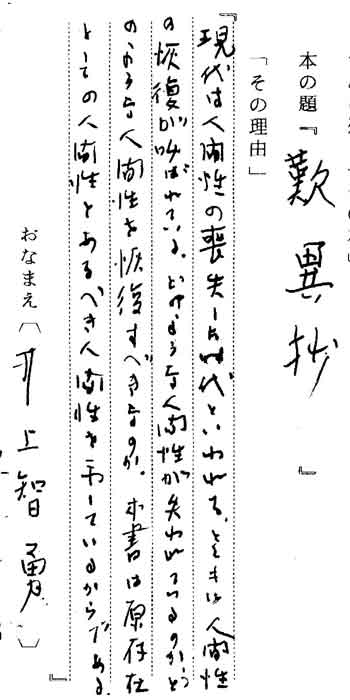 本の題『歎異抄』
「その理由」
『現代は人間性の喪失した時代といわれる。ときに人間性
の恢復が叫ばれている。どのような人間性が失われているのか、ど
のような人間性を恢復すべきなのか。本書は原存在
としての人間性とあるべき人間性を示しているからである。』
おなまえ〔井上智勇〕